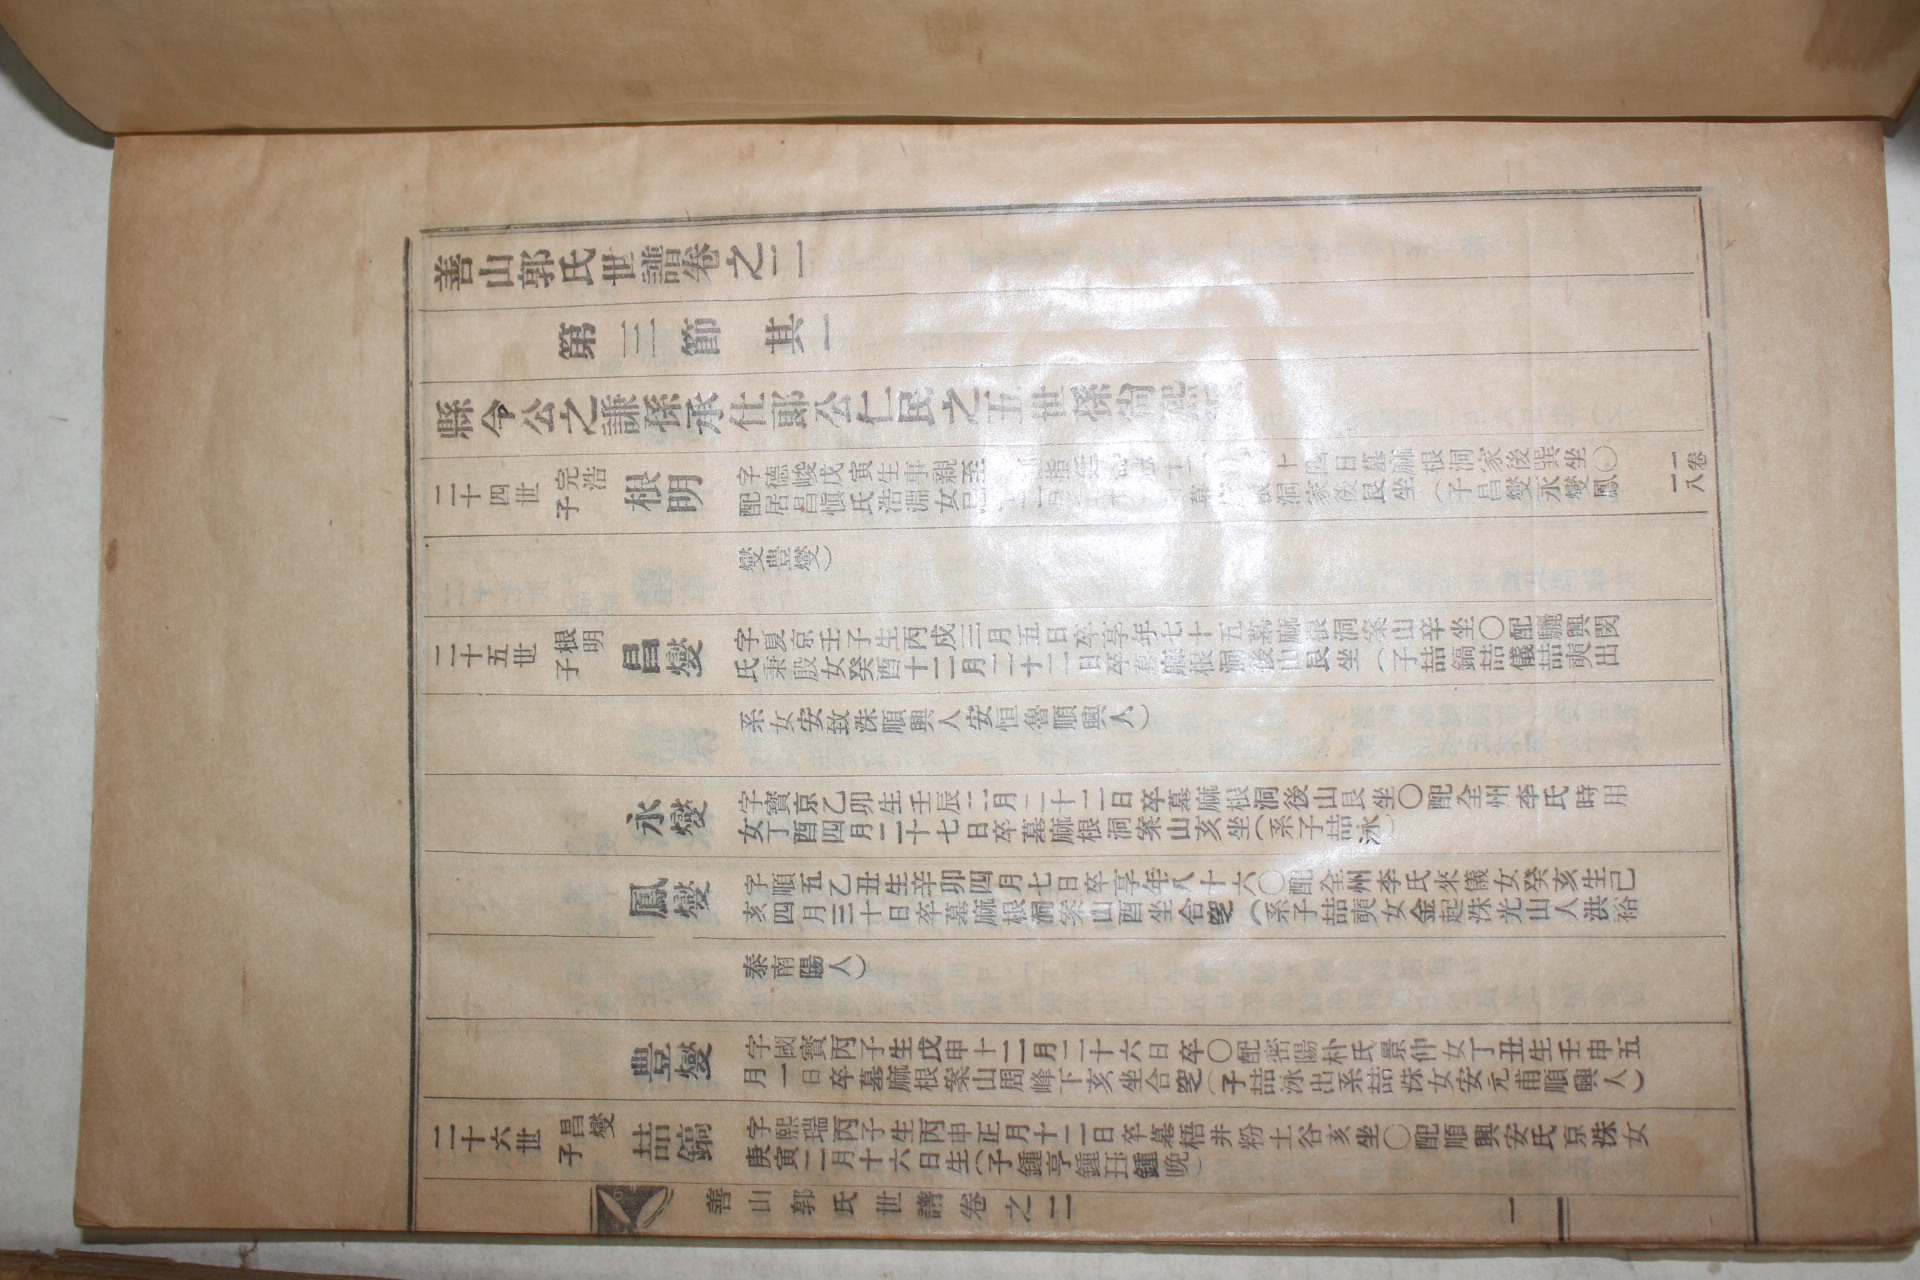 善山郭氏世譜卷之二
第三節 其一
縣令公之謙孫承仕郎公仁民之五世孫尚
二十四世
子完浩
根明
字德峻戊寅生事親至 指 十 日墓麻根洞家後巽坐〇
配居昌愼氏浩淵女 墓 洞家後艮坐(子昌燮永燮鳳
燮豊燮)
一卷
一八
二十五世
子根明
昌燮
字夏京壬子生丙戌三月五日卒享年七十五墓麻根洞案山辛坐〇配驪興閔
氏秉殷女癸酉十二月二十二日卒墓麻根洞後山艮坐(子喆鎬喆儀喆奭出
系女安致洙順興人安恒魯順興人)
永燮
字寶京乙卯生壬辰二月二十二日卒墓麻根洞後山艮坐〇配全州李氏時用
女丁酉四月二十七日卒墓麻根洞案山亥坐(系子喆泳)
鳳燮
字順五乙丑生辛卯四月七日卒享年八十六〇配全州李氏來儀女癸亥生己
亥四月三十日卒墓麻根洞案山酉坐合窆(系子喆奭女金起洙光山人洪裕
泰南陽人)
豊燮
字國寶丙子生戊申十二月二十六日卒〇配密陽朴氏景仲女丁丑生壬申五
月一日卒墓麻根案山周峰下亥坐合窆(子喆泳出系喆洙女安元甫順興人)
二十六世
子昌燮
喆鎬
字熙瑞丙子生丙申正月十二日卒墓梧井粉土谷亥坐〇配順興安氏京洙女
庚寅二月十六日生(子鍾亨鍾珏鍾晩)
善山郭氏世譜卷之二
一